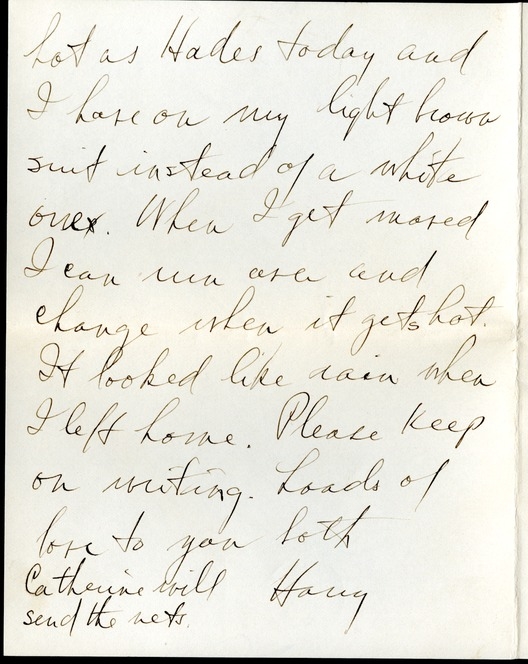 hot as Hades today and
I have on my light brown
suit instead of a white
one. When I get moved
I can run over and
change when it gets hot.
It looked like rain when
I left home. Please keep
on writing. Loads of
love to you both
Harry
Catherine will
send the nets.